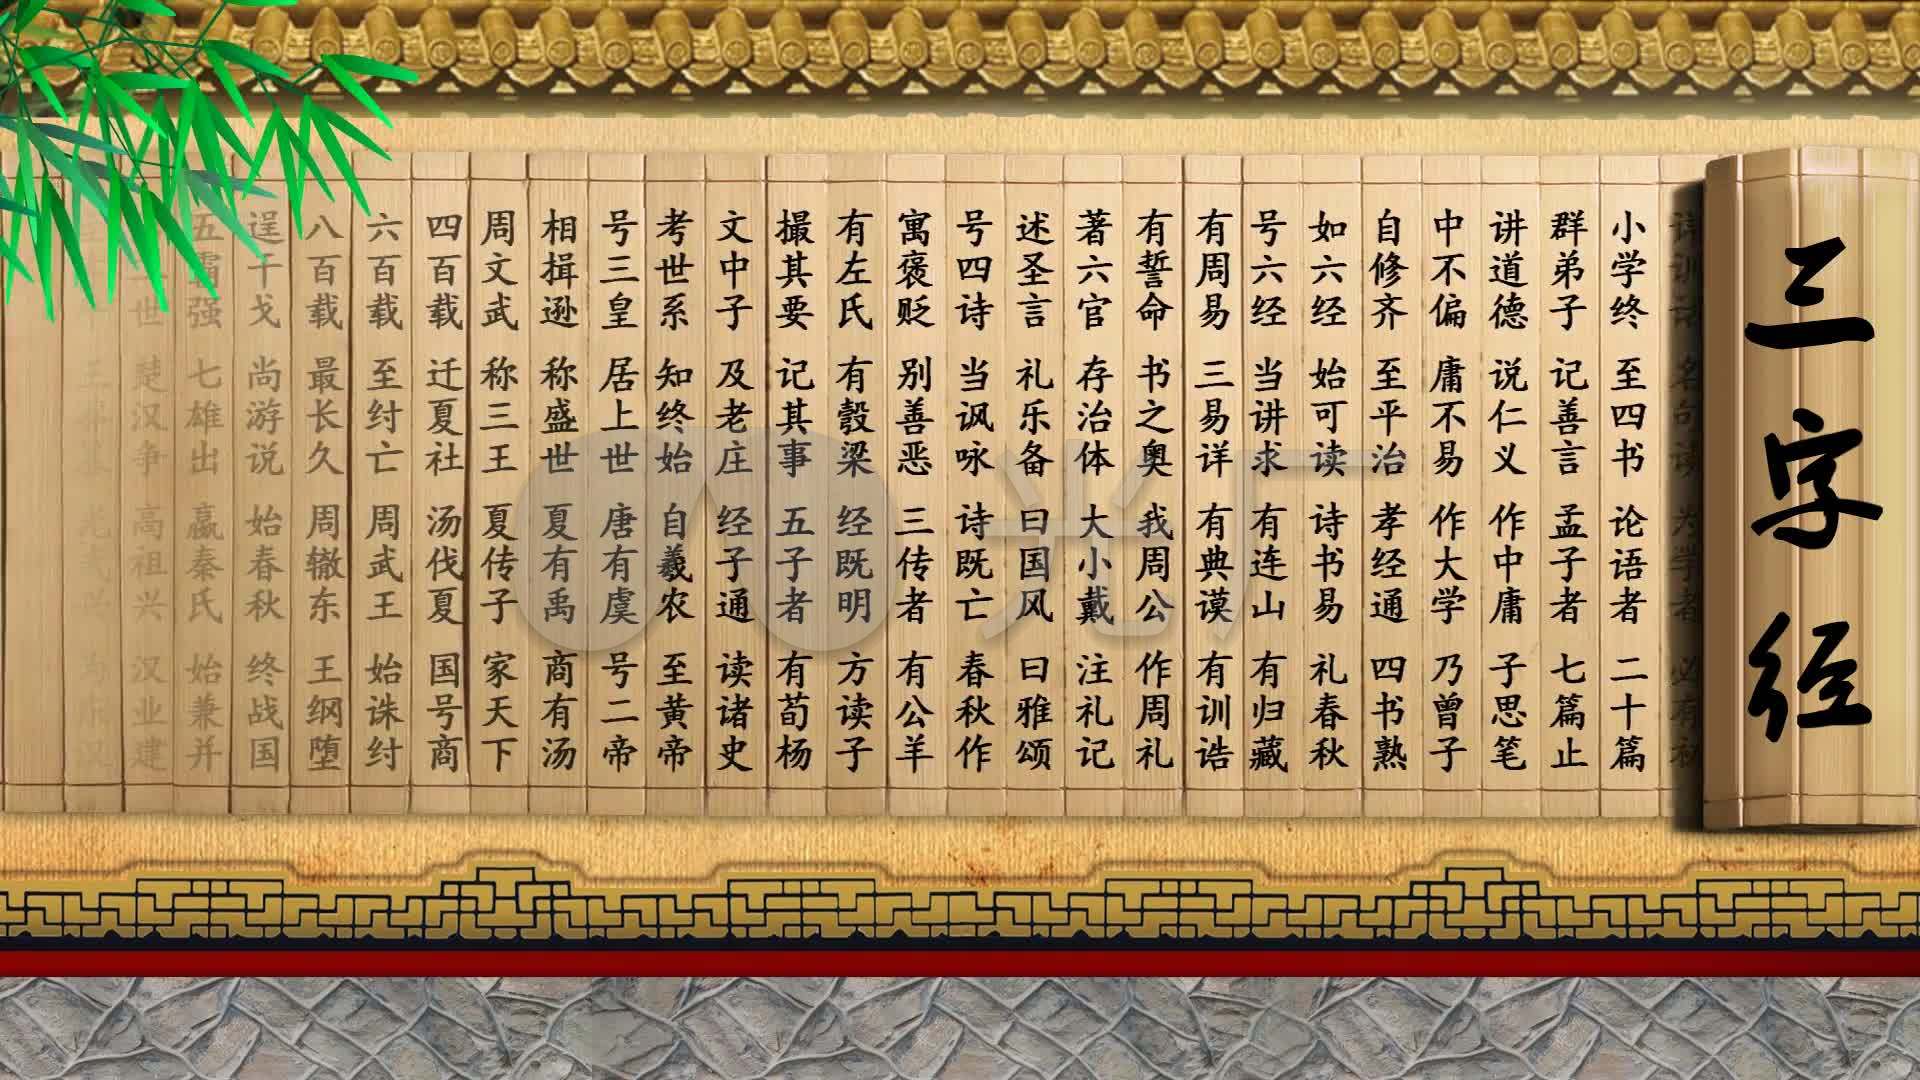 三字经
详训诂 名句读 为学者 必有初
小学终 至四书 论语者 二十篇
群弟子 记善言 孟子者 七篇止
讲道德 说仁义 作中庸 子思笔
中不偏 庸不易 作大学 乃曾子
自修齐 至平治 孝经通 四书熟
如六经 始可读 诗书易 礼春秋
号六经 当讲求 有连山 有归藏
有周易 三易详 有典谟 有训诰
有誓命 书之奥 我周公 作周礼
著六官 存治体 大小戴 注礼记
述圣言 礼乐备 曰国风 曰雅颂
号四诗 当讽咏 诗既亡 春秋作
寓褒贬 别善恶 三传者 有公羊
有左氏 有彀梁 经既明 方读子
撮其要 记其事 五子者 有荀杨
文中子 及老庄 经子通 读诸史
考世系 知终始 自羲农 至黄帝
号三皇 居上世 唐有虞 号二帝
相揖逊 称盛世 夏有禹 商有汤
周文武 称三王 夏传子 家天下
四百载 迁夏社 汤伐夏 国号商
六百载 至纣亡 周武王 始诛纣
八百载 最长久 周辙东 王纲堕
逞干戈 尚游说 始春秋 终战国
五霸强 七雄出 嬴秦氏 始兼并
世 楚汉争 高祖兴 汉业建
光厂